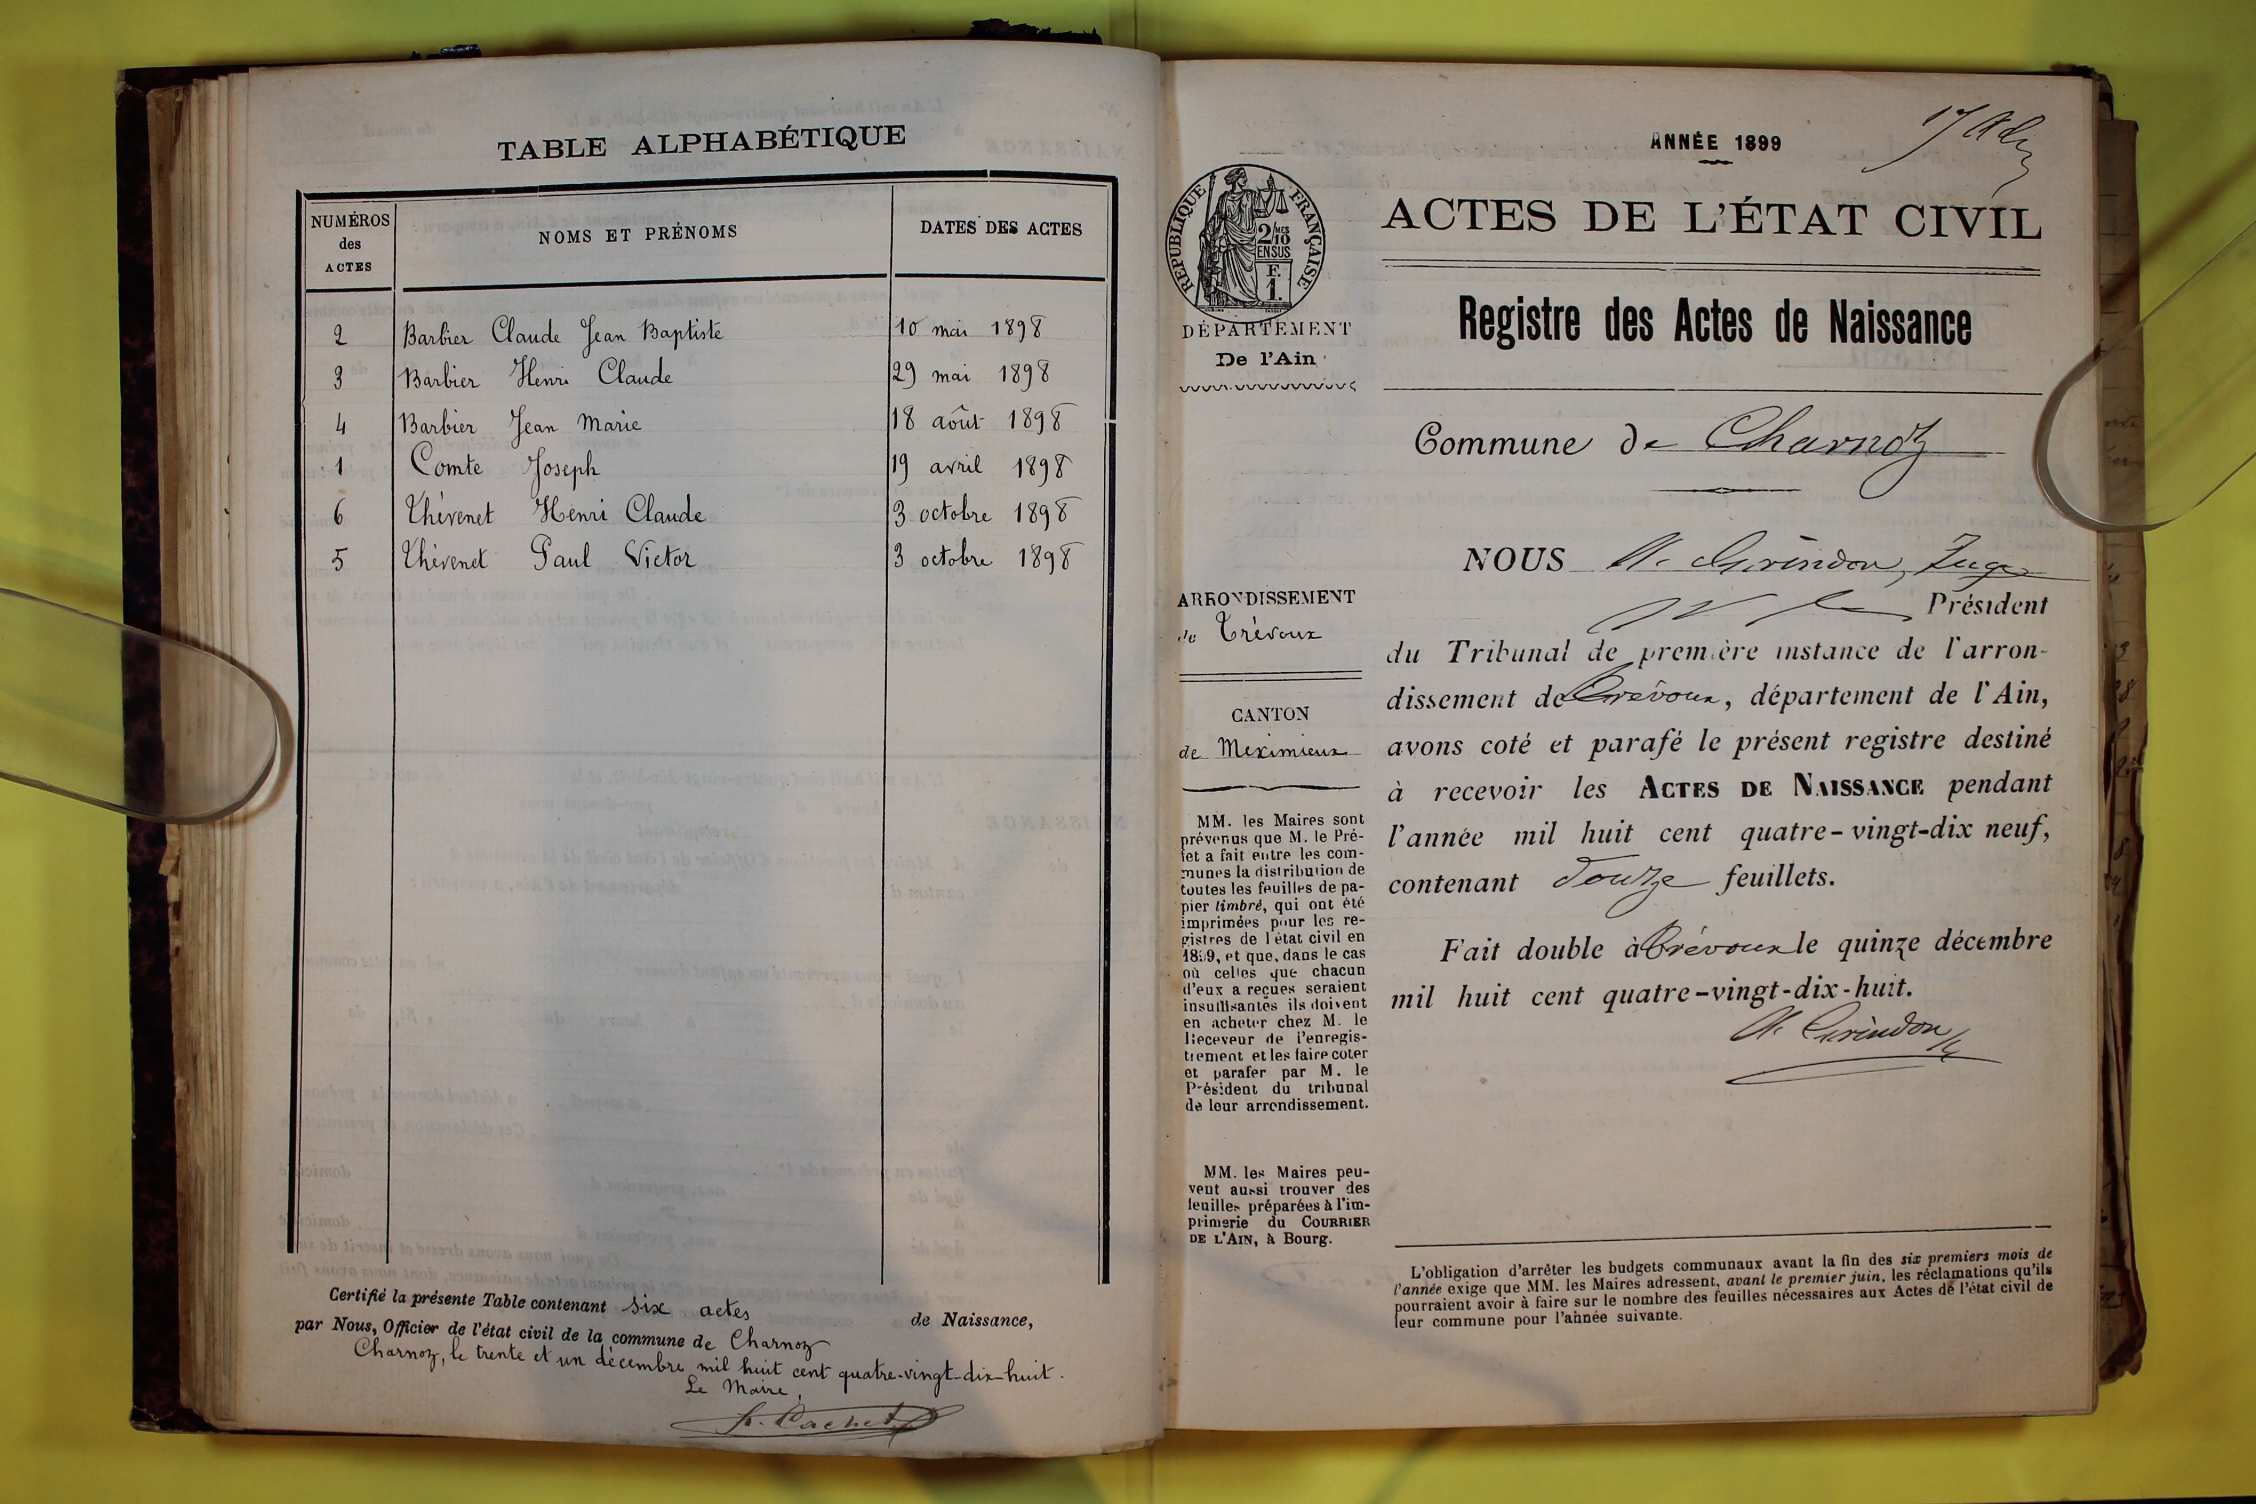 TABLE ALPHABÉTIQUE
NUMÉROS
des
ACTES
NOMS ET PRÉNOMS
DATES DES ACTES
2 Barbier Claude Jean Baptiste 10 mai 1898
3 Barbier Henri Claude 29 mai 1898
4 Barbier Jean Marie 18 août 1898
1 Comte Joseph 19 avril 1898
6 Thévenet Henri Claude 3 octobre 1898
5 Thévenet Paul Victor 3 octobre 1898
Certifié la présente Table contenant six actes de Naissance,
par Nous, Officier de l'état civil de la commune de Charnoz
Charnoz, le trente et un décembre mil huit cent quatre-vingt-dix-huit.
Le Maire,
Cachet
ANNÉE 1899
ACTES DE L'ÉTAT CIVIL
RÉPUBLIQUE FRANÇAISE
2/10 MES
EN SUS
F.
1.
DÉPARTEMENT
De l'Ain
Registre des Actes de Naissance
Commune de Charnoz
ARRONDISSEMENT
de Trévoux
CANTON
de Meximieux
MM. les Maires sont
prévenus que M. le Pré-
fet a fait entre les com-
munes la distribution de
toutes les feuilles de pa-
pier timbré, qui ont été
imprimées pour les re-
gistres de l'état civil en
1899, et que, dans le cas
où celles que chacun
d'eux a reçues seraient
insuffisantes ils doivent
en acheter chez M. le
Receveur de l'enregis-
trement et les faire coter
et parafer par M. le
Président du tribunal
de leur arrondissement.
MM. les Maires peu-
vent aussi trouver des
feuilles préparées à l'im-
primerie du COURRIER
DE L'AIN, à Bourg.
NOUS Juge
Président
du Tribunal de première instance de l'arron-
dissement de Trévoux, département de l'Ain,
avons coté et parafé le présent registre destiné
à recevoir les ACTES DE NAISSANCE pendant
l'année mil huit cent quatre-vingt-dix neuf,
contenant Douze feuillets.
Fait double à Trévoux le quinze décembre
mil huit cent quatre-vingt-dix-huit.
L'obligation d'arrêter les budgets communaux avant la fin des six premiers mois de
l'année exige que MM. les Maires adressent, avant le premier juin, les réclamations qu'ils
pourraient avoir à faire sur le nombre des feuilles nécessaires aux Actes de l'état civil de
leur commune pour l'année suivante.